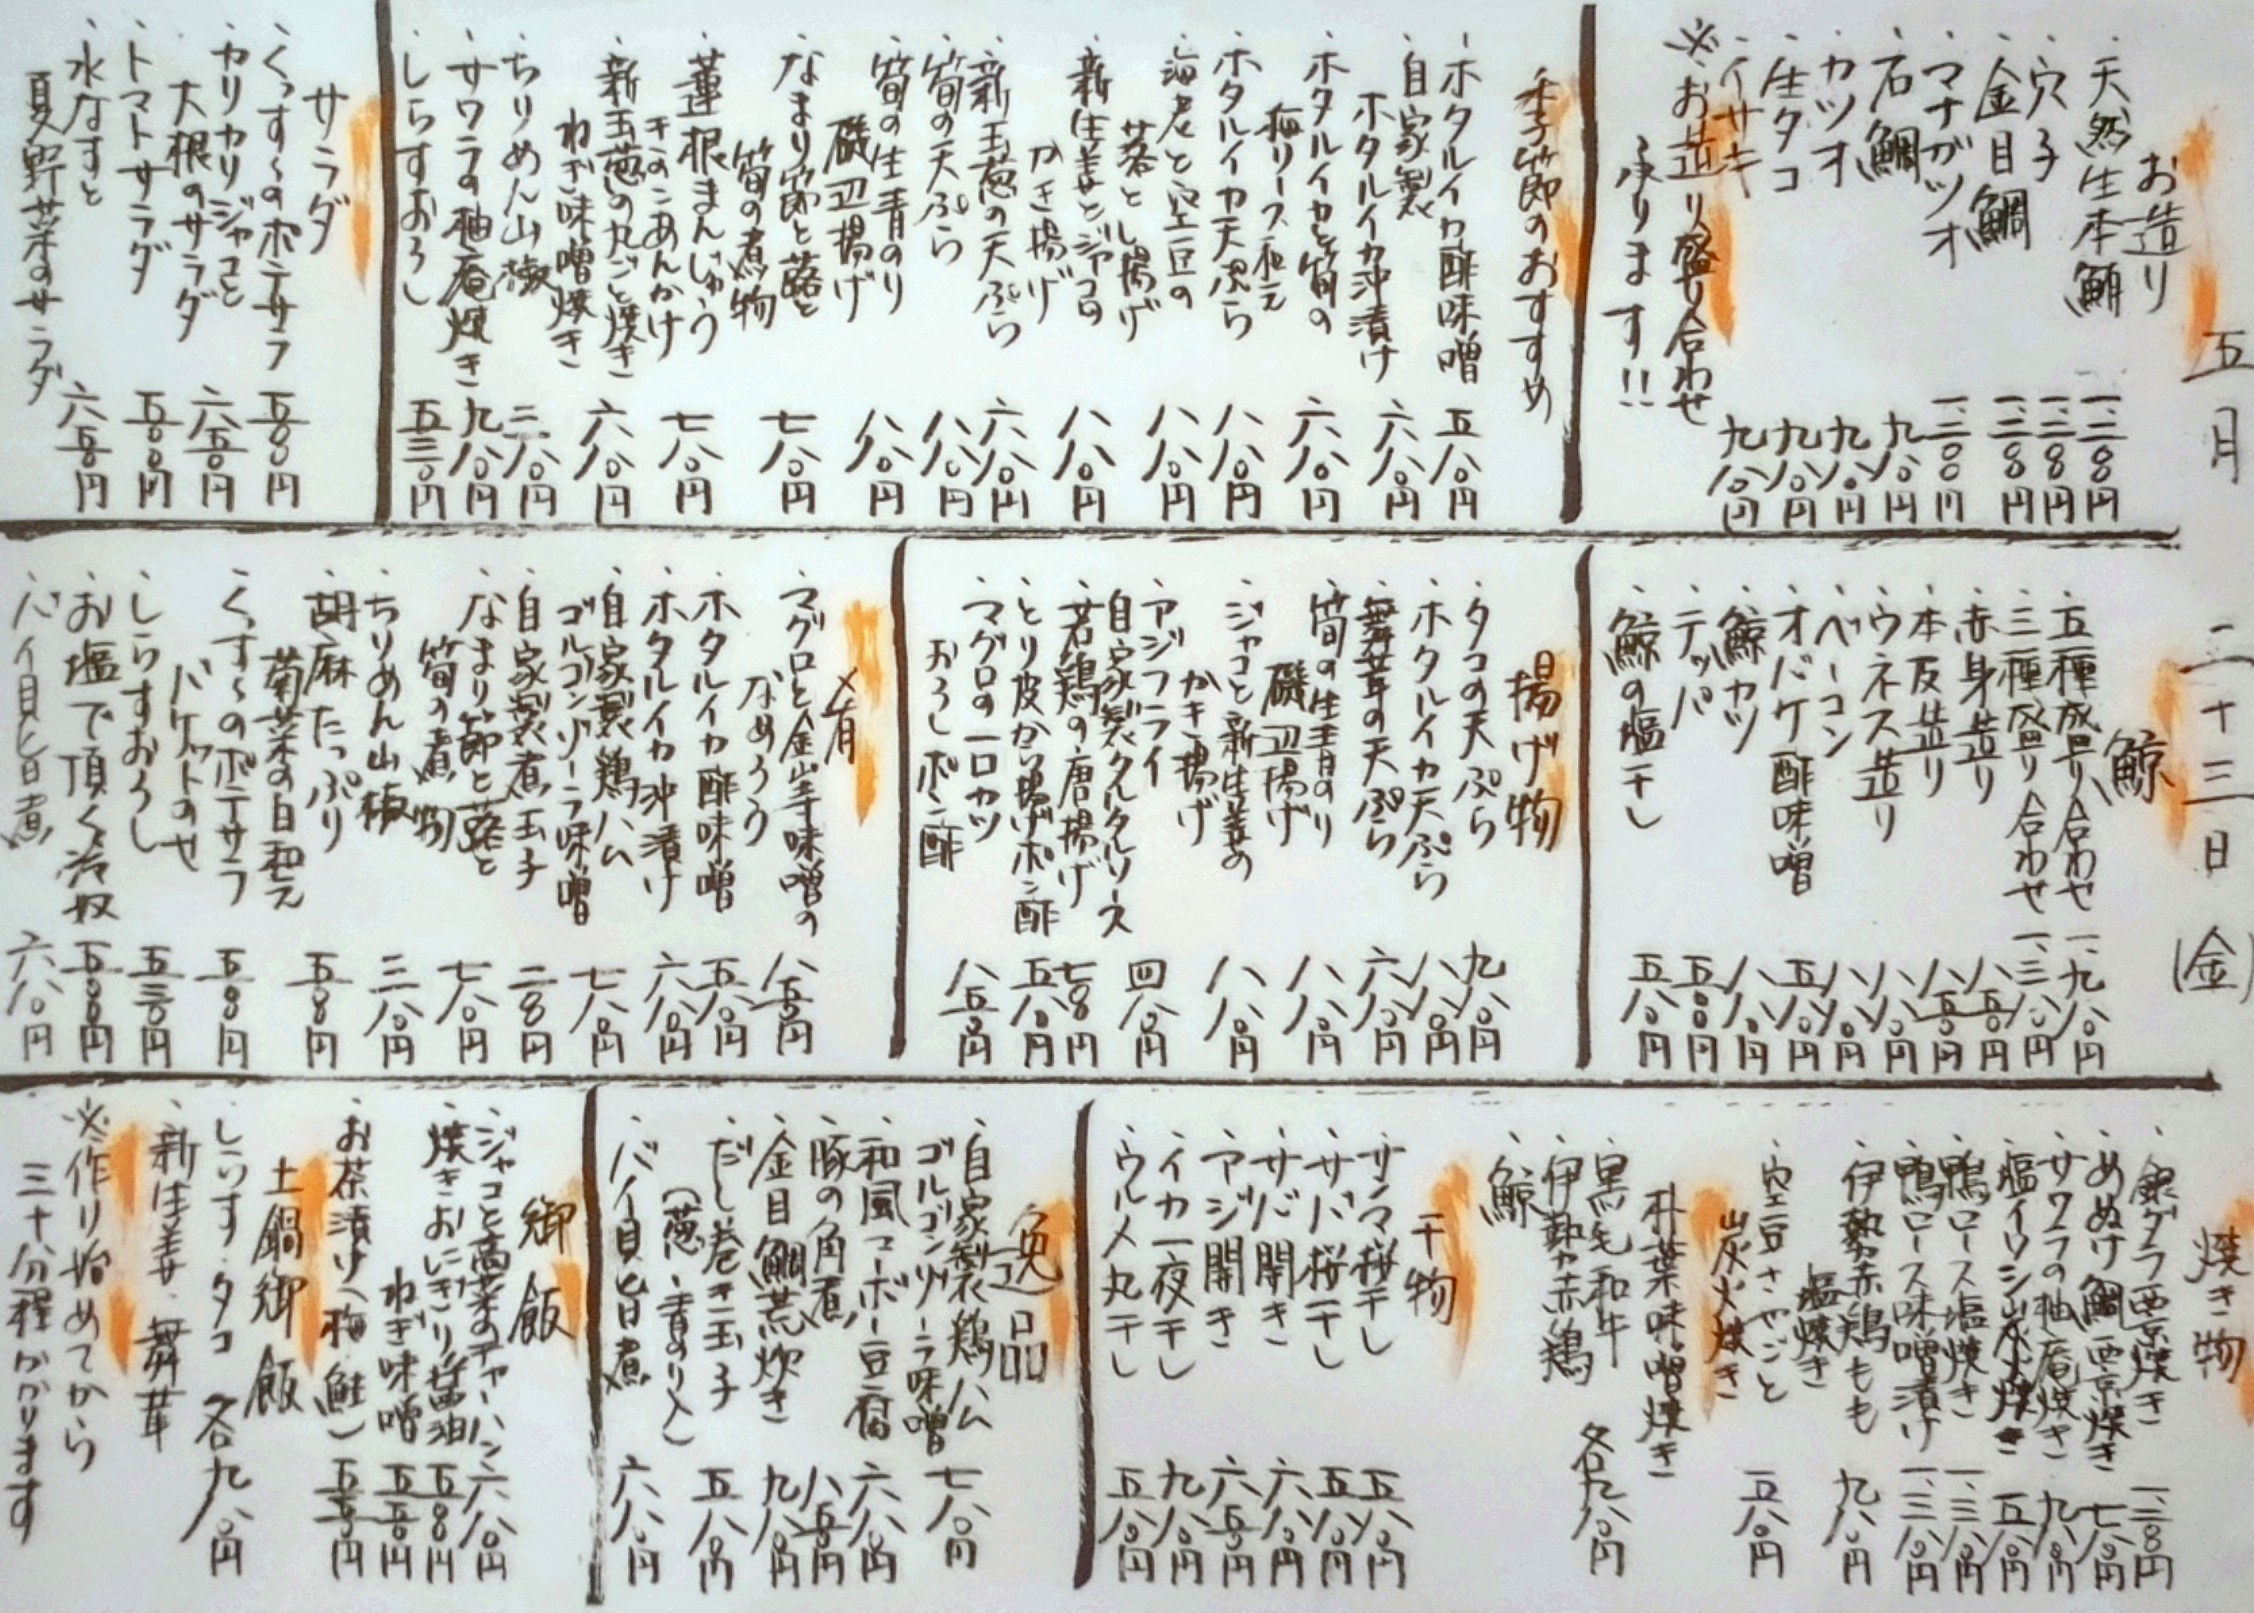 五月 二十三日(金)
お造り
・天然生本鮪 一、二八〇円
・穴子 一、二八〇円
・金目鯛 一、二八〇円
・マナガツオ 一、二〇〇円
・石鯛 九八〇円
・カツオ 九八〇円
・生タコ 九八〇円
・イサキ 九八〇円
※お造り盛り合わせ
承ります!!
季節のおすすめ
・ホタルイカ酢味噌 五八〇円
・自家製
ホタルイカ沖漬け 六八〇円
・ホタルイカと筍の
梅ソース和え 六八〇円
・ホタルイカ天ぷら 八八〇円
・海老と空豆の
落とし揚げ 八八〇円
・新生姜とジャコの
かき揚げ 八八〇円
・新玉葱の天ぷら 六八〇円
・筍の天ぷら 八八〇円
・筍の生青のり
磯辺揚げ 八八〇円
・なまり節と蕗と
筍の煮物 七八〇円
・蓮根まんじゅう
きのこあんかけ 七八〇円
・新玉葱の丸ごと焼き
ねぎ味噌焼き 六八〇円
・ちりめん山椒 三八〇円
・サワラの柚庵焼き 九八〇円
・しらすおろし 五三〇円
サラダ
・くっすーのポテサラ 五八〇円
・カリカリジャコと
大根のサラダ 六五〇円
・トマトサラダ 五〇〇円
・水なすと
夏野菜のサラダ 六五〇円
鯨
・五種盛り合わせ 一、九八〇円
・三種盛り合わせ 一、三八〇円
・赤身造り 八五〇円
・本皮造り 八五〇円
・ウネス造り 八八〇円
・ベーコン 八八〇円
・オバケ酢味噌 五八〇円
・鯨カツ 八八〇円
・テッパ 五〇〇円
・鯨の塩干し 五八〇円
揚げ物
・タコの天ぷら 九八〇円
・ホタルイカ天ぷら 八八〇円
・舞茸の天ぷら 六八〇円
・筍の生青のり
磯辺揚げ 八八〇円
・ジャコと新生姜の
かき揚げ 八八〇円
・アジフライ
自家製タルタルソース 四八〇円
・若鶏の唐揚げ 七八〇円
・とり皮から揚げポン酢 五八〇円
・マグロの一口カツ
おろしポン酢 八五〇円
肴
・マグロと金山寺味噌の
なめろう 八五〇円
・ホタルイカ酢味噌 五八〇円
・ホタルイカ沖漬け 六八〇円
・自家製鶏ハム
ゴルゴンゾーラ味噌 七八〇円
・自家製煮玉子 二八〇円
・なまり節と蕗と
筍の煮物 七八〇円
・ちりめん山椒 三八〇円
・胡麻たっぷり
菊菜の白和え 五八〇円
・くっすーのポテサラ
バケットのせ 五八〇円
・しらすおろし 五三〇円
・お塩で頂く冷奴 五〇〇円
・バイ貝旨煮 六八〇円
焼き物
・銀ダラ西京焼き 一、二八〇円
・めぬけ鯛西京焼き 七八〇円
・サワラの柚庵焼き 九八〇円
・塩イワシ炭火焼き 五八〇円
・鴨ロース塩焼き 一、三八〇円
・鴨ロース味噌漬け 一、三八〇円
・伊勢赤鶏もも
塩焼き 九八〇円
・空豆さやごと
炭火焼き 五八〇円
朴葉味噌焼き
・黒毛和牛
・伊勢赤鶏
・鯨 各九八〇円
干物
・サンマ桜干し 五八〇円
・サバ桜干し 五八〇円
・サバ開き 六八〇円
・アジ開き 六五〇円
・イカ一夜干し 九八〇円
・ウルメ丸干し 五八〇円
逸品
・自家製鶏ハム
ゴルゴンゾーラ味噌 七八〇円
・和風マーボー豆腐 六八〇円
・豚の角煮 八五〇円
・金目鯛荒炊き 九八〇円
・だし巻き玉子
(葱・青のり入) 五八〇円
・バイ貝旨煮 六八〇円
御飯
・ジャコと高菜のチャーハン 六八〇円
・焼きおにぎり醤油 五〇〇円
ねぎ味噌 五五〇円
・お茶漬け(梅・鮭) 五五〇円
土鍋御飯
・しらす・タコ
・新生姜・舞茸 各九八〇円
※作り始めてから
三十分程かかります